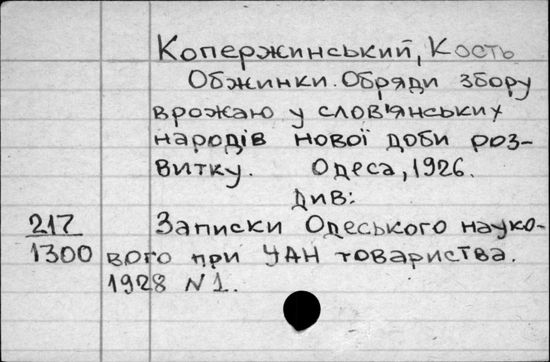 Копержинський, Кость
Обжинки. Обряди збору
врожаю у слов'янських
народів нової доби роз-
витку. Одеса, 1926.
Див:
217
1300
Записки Одеського науко-
вого при УАН товариства.
1928 N1.